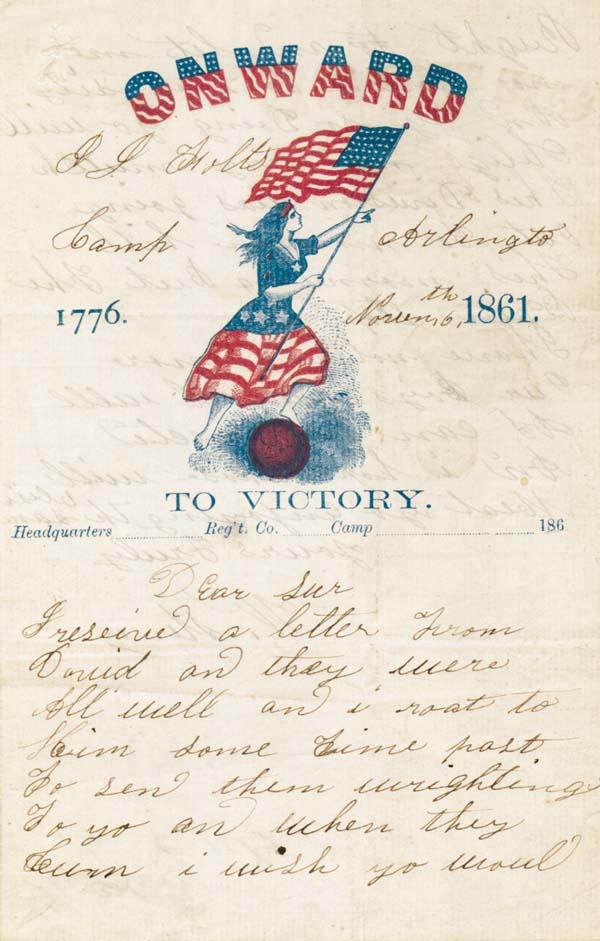 ONWARD
J J Folts
Camp Arlingto
1776. Novem 6th, 1861.
TO VICTORY.
Headquarters Reg't. Co. Camp 186
Dear sur
I reseived a letter from
David and they were
All well and i roat to
Him some time past
To send them wrighting
To yo and when they
Cum i wish yo woul